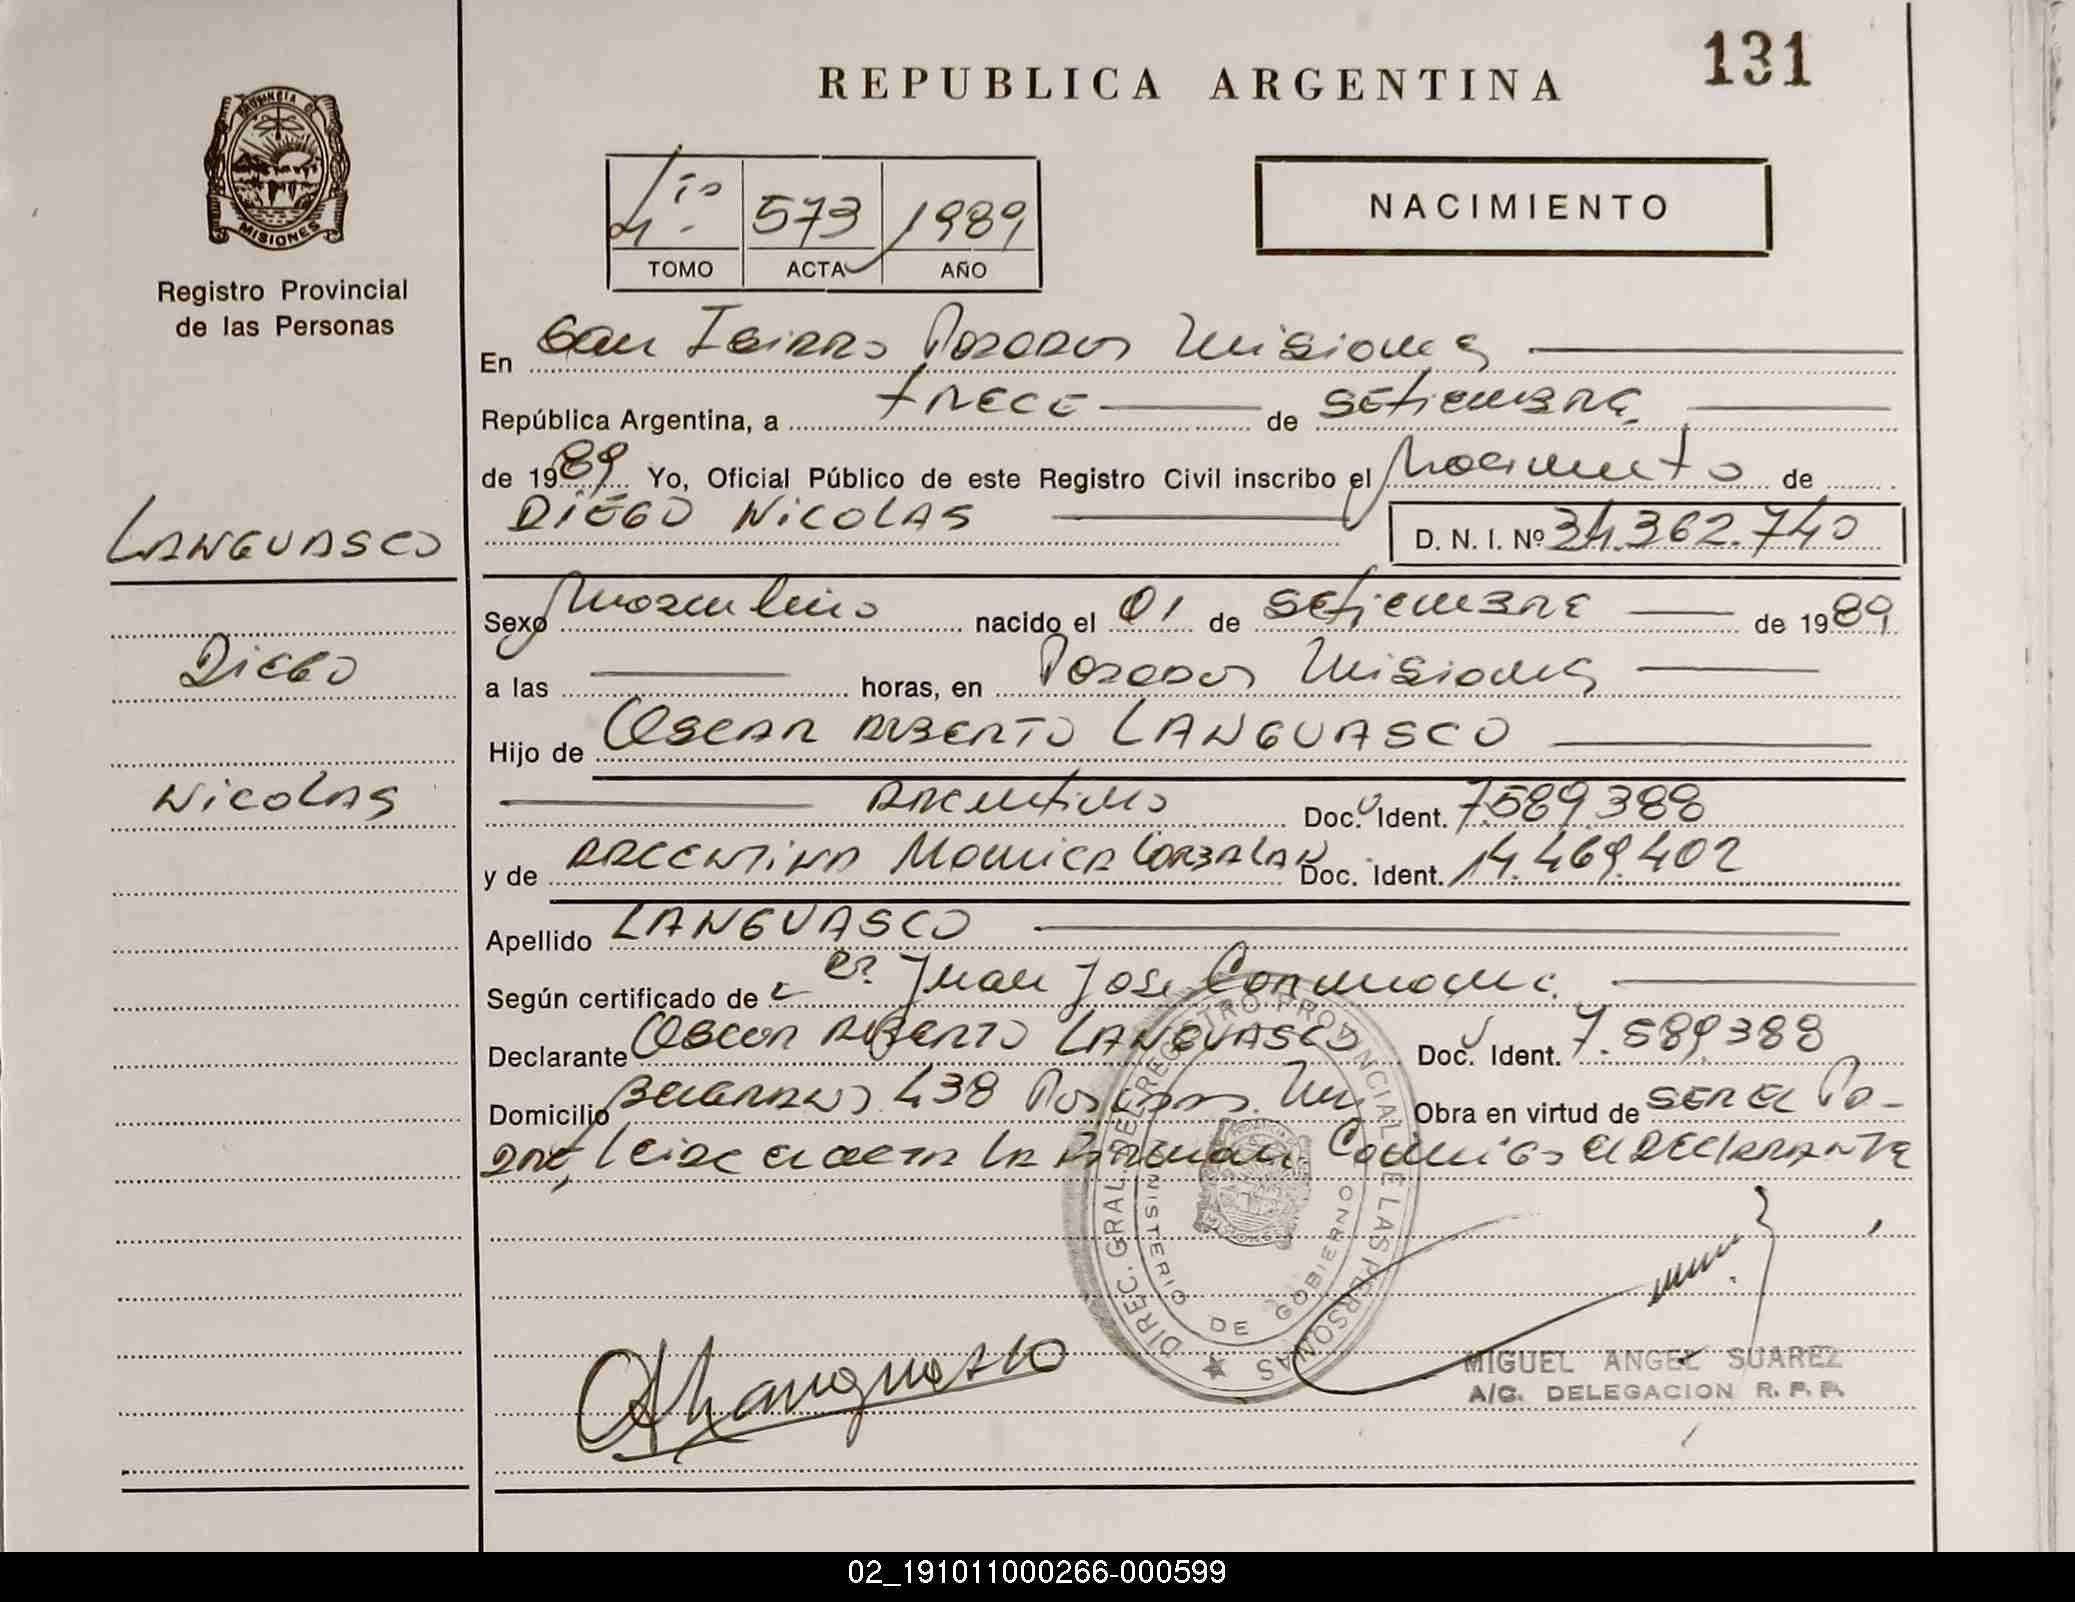 131
REPUBLICA ARGENTINA
PROVINCIA DE
MISIONES
Registro Provincial
de las Personas
573 1989
TOMO ACTA AÑO
NACIMIENTO
En San Isidro Posadas Misiones
República Argentina, a trece de setiembre
de 1989 Yo, Oficial Público de este Registro Civil inscribo el Nacimiento de
DIEGO NICOLAS
D. N. I. Nº 34.362.740
LANGUASCO
Diego
Nicolas
Sexo Masculino nacido el 01 de setiembre de 1989
a las horas, en Posadas Misiones
Hijo de Oscar Alberto LANGUASCO
Argentino Doc. Ident. 7.589.388
y de Argentina Monica Doc. Ident. 14.469.402
Apellido LANGUASCO
Según certificado de Juan Jose
Declarante Oscar Alberto LANGUASCO Doc. Ident. 7.589.388
Domicilio Belgrano 438 Posadas Mnes Obra en virtud de ser el Pa-
dre, leida el acta la firman conmigo el declarante
DIREC. GRAL. DEL REGISTRO PROVINCIAL DE LAS PERSONAS
MINISTERIO DE GOBIERNO
MIGUEL ANGEL SUAREZ
A/C. DELEGACION R. P. P.
02_191011000266-000599